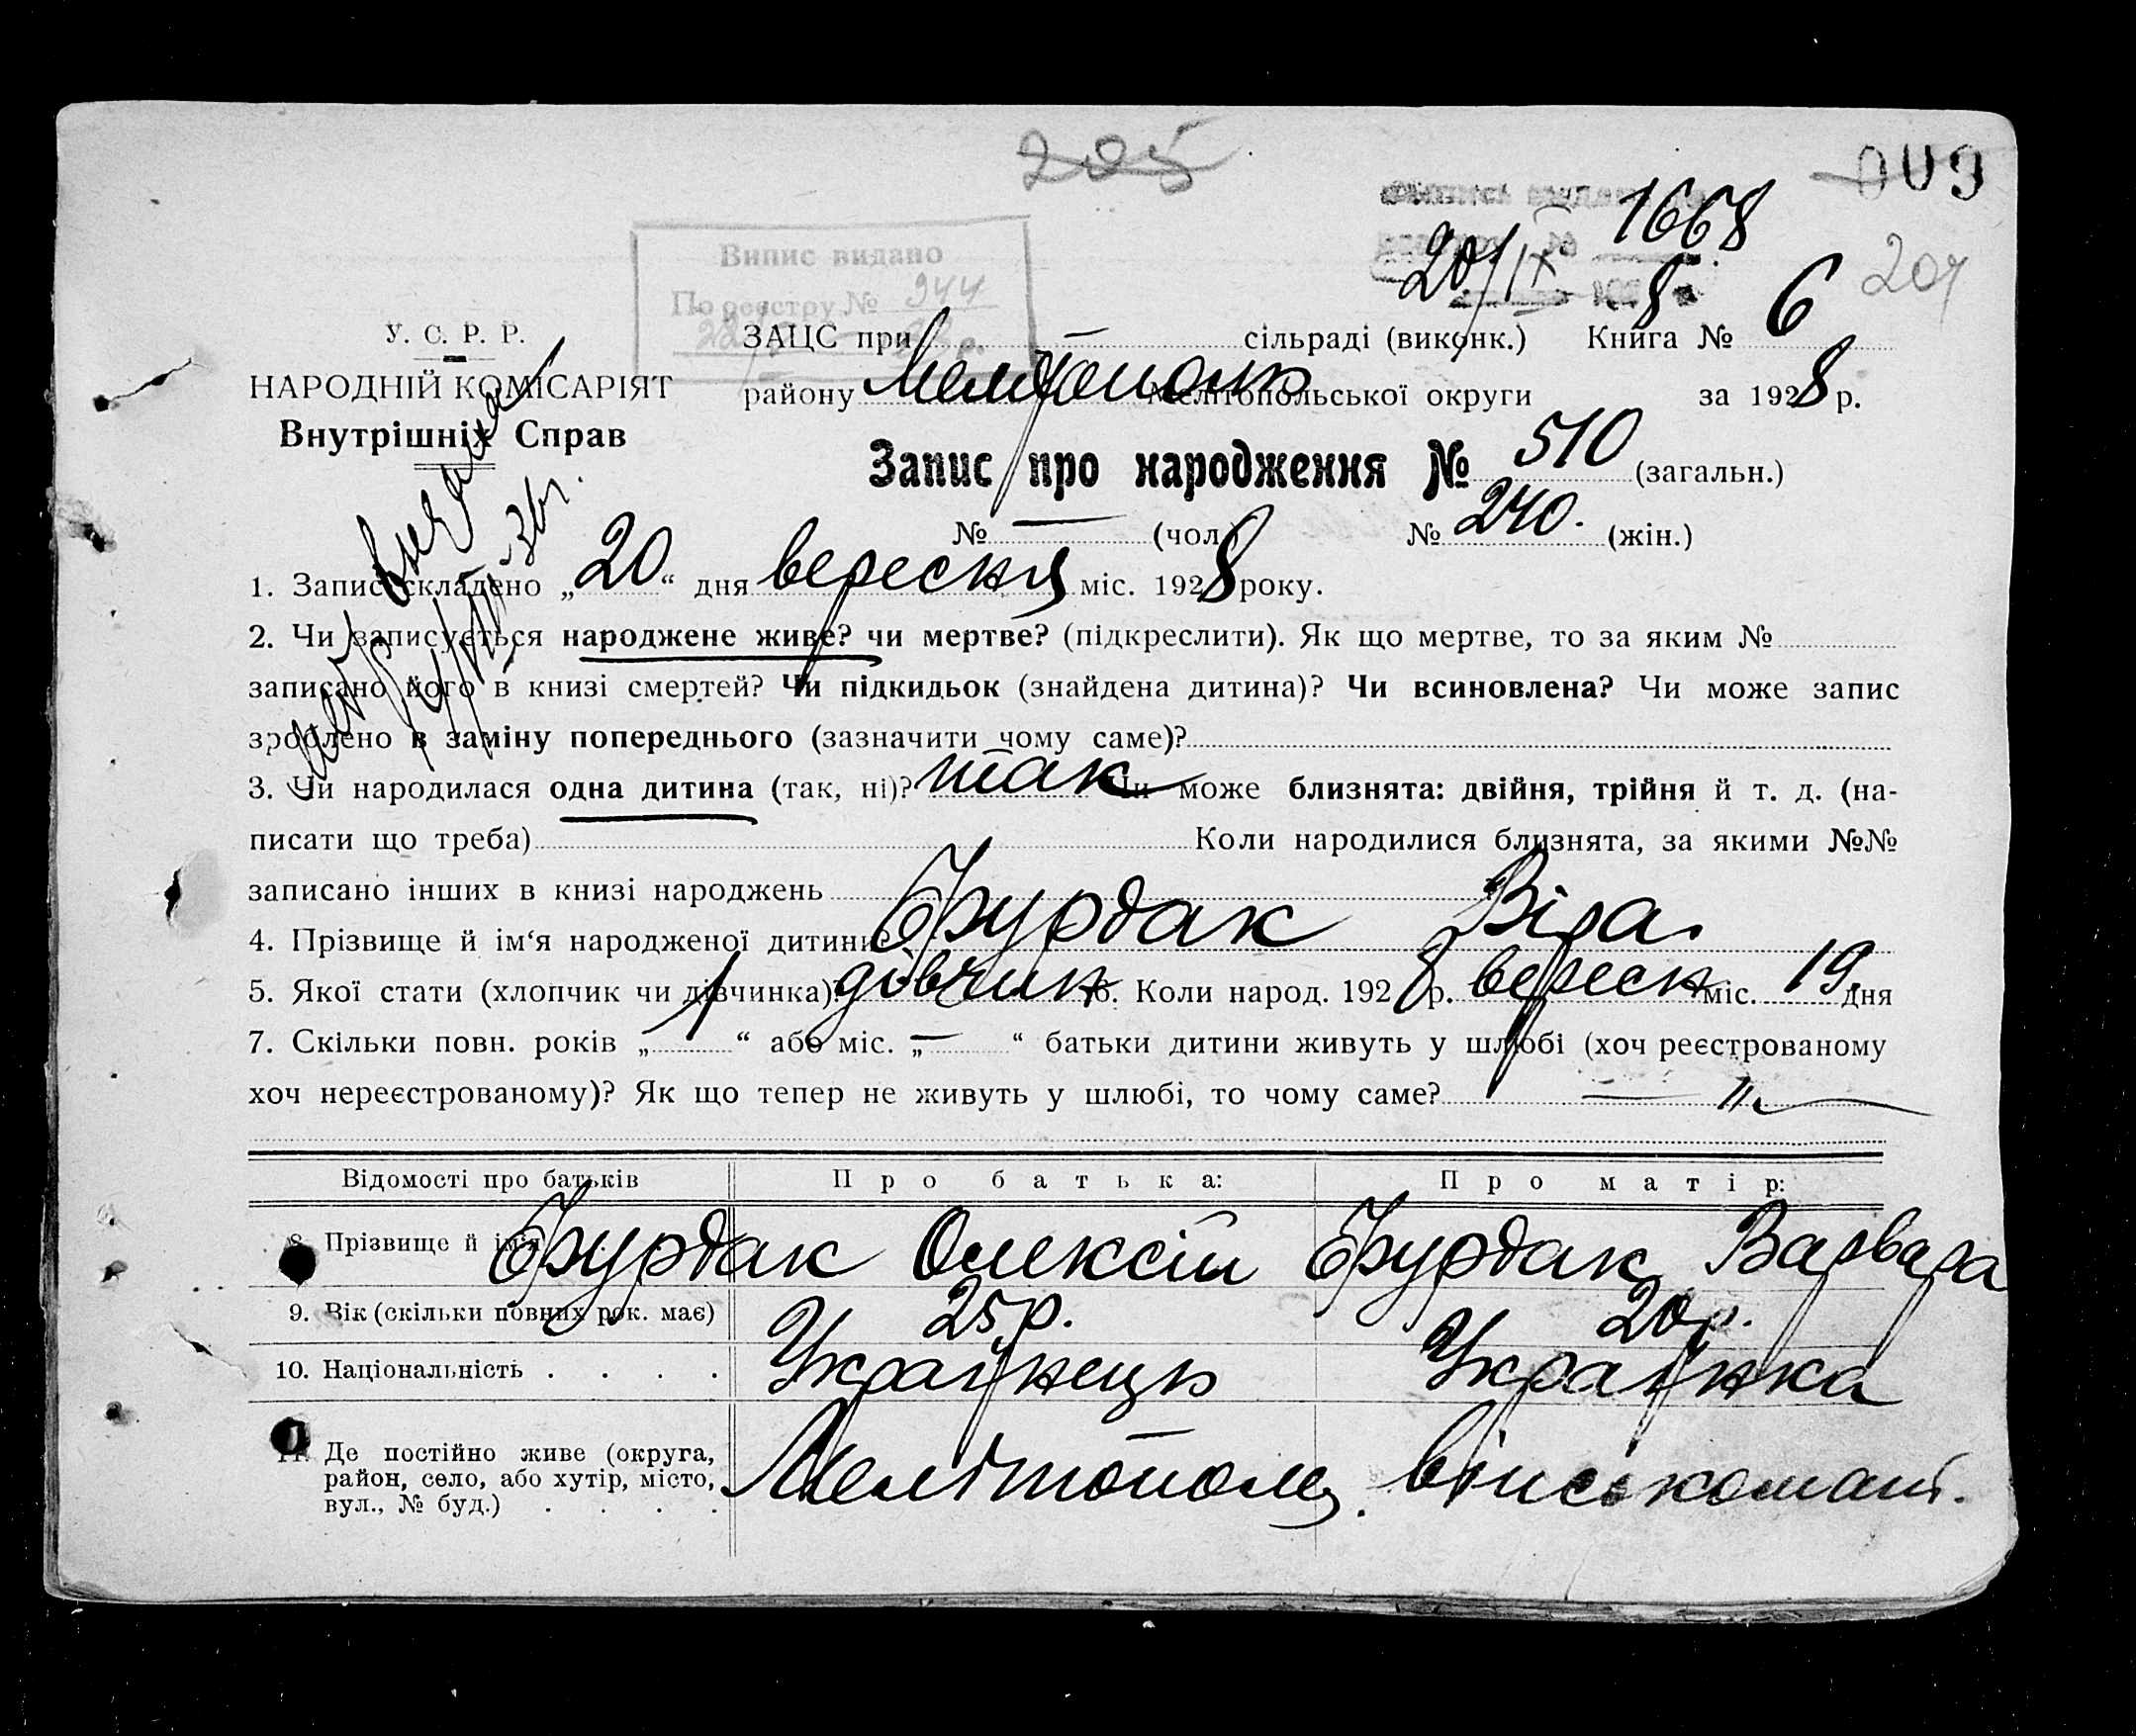 205
009
1668
20/IX
8.
204
Випис видано
По реєстру № 944
У. С. Р. Р.
НАРОДНІЙ КОМІСАРІЯТ
Внутрішніх Справ
ЗАЦС при сільраді (виконк.) Книга № 6
району Мелітопольськ Мелітопольської округи за 1928 р.
Запис про народження № 510 (загальн.)
№ — (чол.) № 240. (жін.)
1. Запис складено „20“ дня вересня міс. 1928 року.
2. Чи записується народжене живе? чи мертве? (підкреслити). Як що мертве, то за яким №
записано його в книзі смертей? Чи підкидьок (знайдена дитина)? Чи всиновлена? Чи може запис
зроблено в заміну попереднього (зазначити чому саме)?
3. Чи народилася одна дитина (так, ні)? так Чи може близнята: двійня, трійня й т. д. (на-
писати що треба) Коли народилися близнята, за якими №№
записано інших в книзі народжень
4. Прізвище й ім‘я народженої дитини? Бурдак Віра
5. Якої стати (хлопчик чи дівчинка)? дівчин 6. Коли народ. 1928 р. вересн міс. 19 дня
7. Скільки повн. років „1“ або міс. „—“ батьки дитини живуть у шлюбі (хоч реєстрованому
хоч нереєстрованому)? Як що тепер не живуть у шлюбі, то чому саме? — „ —
Відомості про батьків Про батька: Про матір:
8. Прізвище й ім'я Бурдак Олексій Бурдак Варвара
9. Вік (скільки повних рок. має) 25 р. 20 р.
10. Національність . . . . Українець Українка
11. Де постійно живе (округа,
район, село, або хутір, місто,
вул., № буд.) . . . . Мелітополь.